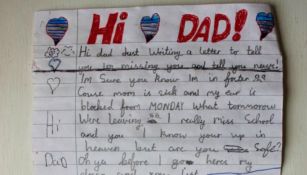 Hi DAD!
Hi dad Just Writing a letter to tell
you Im missing you and tell you news!
I'm Sure you Know Im in foster
Couse mom is sick and my ear is
blocked from MONDAY What tommorow
Were leaving I really miss School
Hi and you I know your up in
heaven but are you Safe?
Dad Oh ya before I go heres my